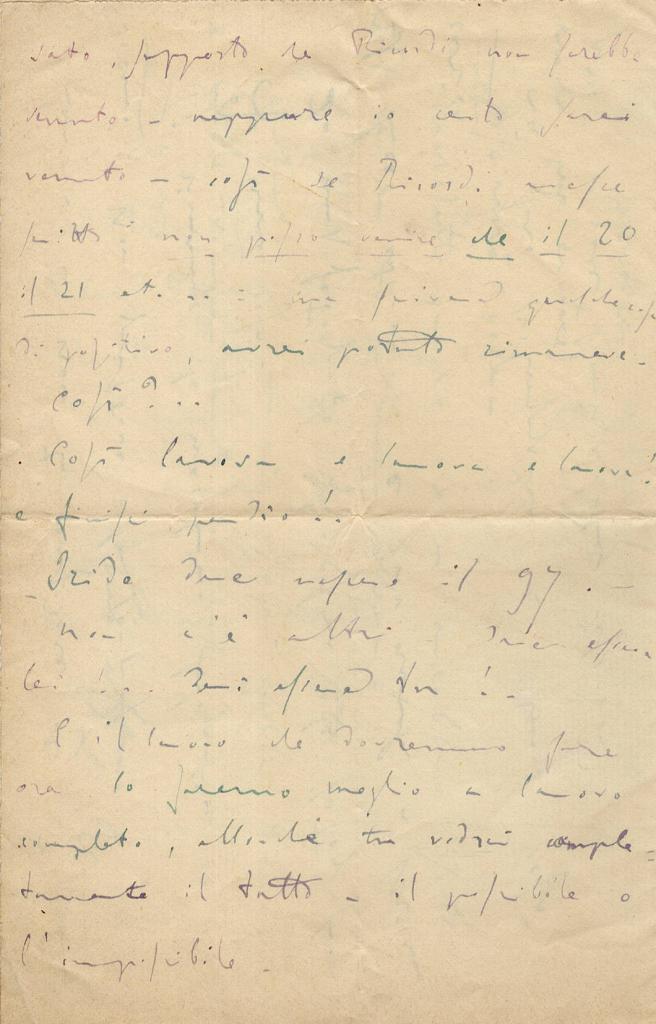 sato, supposto che Ricordi non sarebbe
venuto - neppure io certo sarei
venuto - così se Ricordi avesse
scritto non posso venire che il 20
il 21 et. ... : ma scrivend qualche cosa
di positivo, avrei potuto rimanere.
Così?...
Così lavora e lavora e lavora!
e finisci per Dio!!
Iride deve nascere il 97. -
non c'è altri deve essere
lei!... Devi essere tu!..
E il lavoro che dovremmo fare
ora lo faremo meglio a lavoro
completo, allorché tu vedrai comple=
tamente il tutto - il possibile o
l'impossibile -